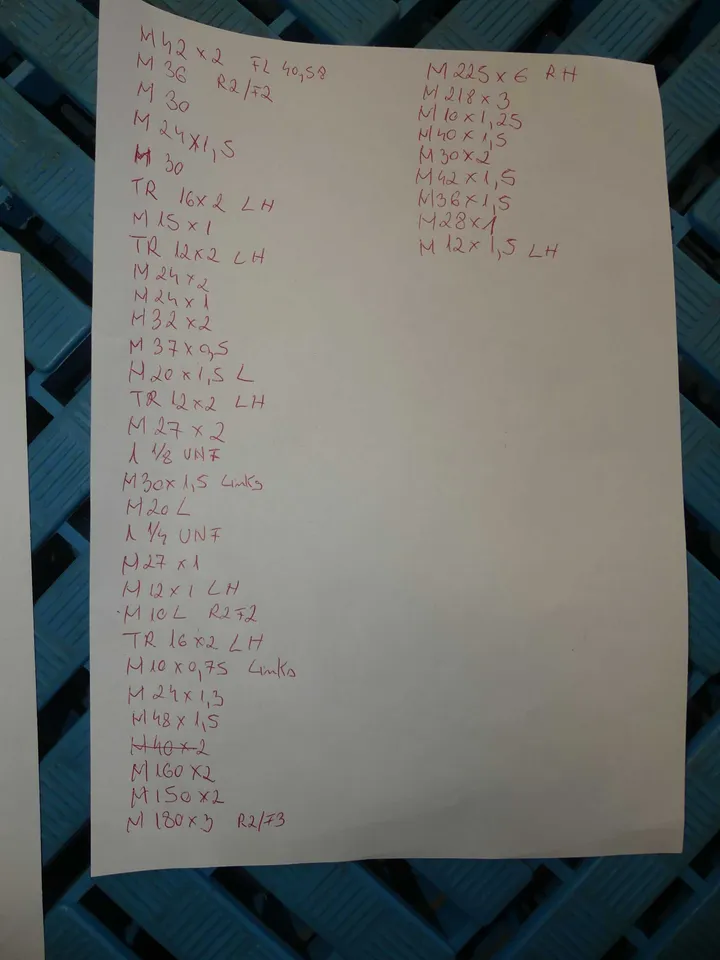 M42x2 FL 40,58
M 36 R2/F2
M 30
M 24x1,5
M 30
TR 16x2 LH
M 15x1
TR 12x2 LH
M 24x2
M 24x1
M 32x2
M 37x0,5
M20x1,5 L
TR 12x2 LH
M 27x2
1 1/8 UNF
M30x1,5 Links
M20 L
1 1/4 UNF
M27x1
M12x1 LH
M10L R2F2
TR 16x2 LH
M10x0,75 Links
M 24x1,3
M48x1,5
M40x2
M160x2
M150x2
M 180x3 R2/F3
M 225x6 RH
M 218x3
M10x1,25
M40x1,5
M30x2
M42x1,5
M36x1,5
M28x1
M 12x1,5 LH